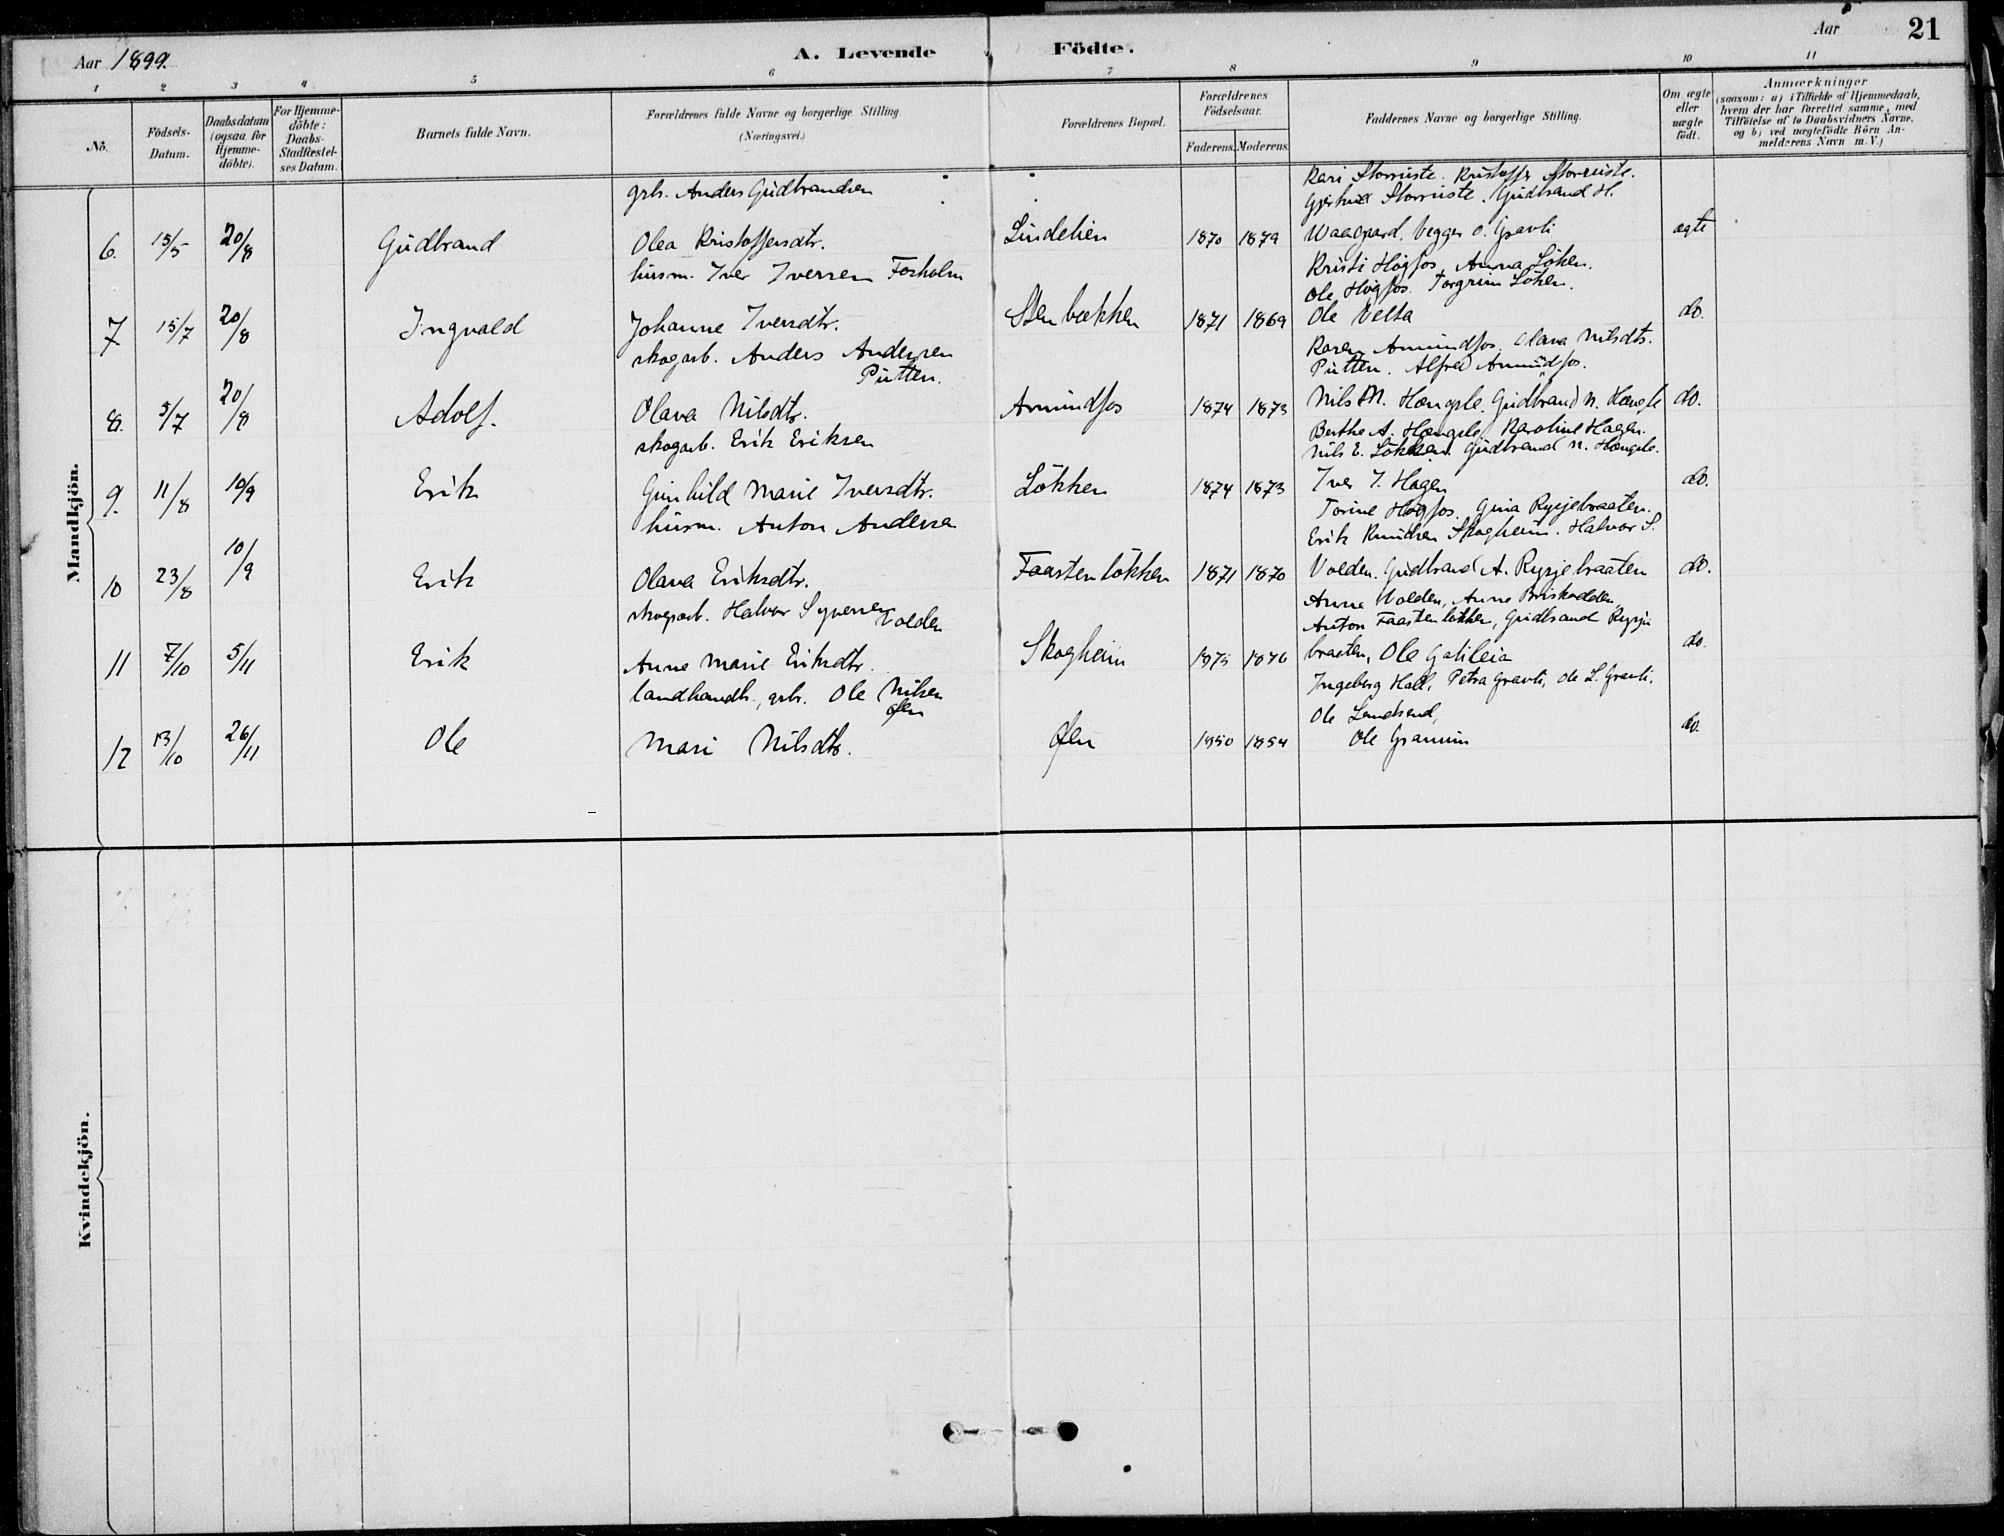 Aar 1899. A. Levende Födte. Aar 21
1 2 3 4 5 6 7 8 9 10 11
No. Födsels-Datum. Daabsdatum (ogsaa for Hjemme-döbte). For Hjemme-döbte: Daabs-Stadfæstel-ses Datum. Barnets fulde Navn. Forældrenes fulde Navne og borgerlige Stilling. (Næringsvei.) Forældrenes Bopæl. Forældrenes Födselsaar. Faderens. Moderens. Faddernes Navne og borgerlige Stilling. Om ægte eller uægte födt. Anmærkninger (saasom: a) i Tilfælde af Hjemmedaab, hvem der har forrettet samme, med Tilföielse af to Daabsvidners Navne, og b) ved uægtefödte Börn An-melderens Navn m. V.)
Mandkjön.
grb. Anders Gudbrandsen
Kari Storruste. Kristoffer Storruste.
Gjertrud Storruste. Gudbrand H.
6. 15/5 20/8 Gudbrand Olea Kristoffersdtr. Lindelien 1870 1879 Waagaard. Vegger O. Gravli ægte
husm. Iver Iversen Fosholm
Kristi Högfos, Anna Löken.
Ole Högfos. Torgrim Löken.
7 15/7 20/8 Ingvald Johanne Iversdtr. Stenbækken 1871 1869 Ole Velta do.
skogarb. Anders Andersen
Putten.
Karen Amundfos. Olava Nilsdtr.
Putten. Alfred Amundfos.
8. 5/7 20/8 Adolf. Olava Nilsdtr. Amundfos 1874 1873 Nils N. Hængsle. Gudbrand N. Hængsle do.
skogarb. Erik Eriksen
Berthe A. Hængsle, Karoline Hagen.
Nils E. Lökken. Gudbrand N. Hængsle.
9. 11/8 10/9 Erik Gunhild Marie Iversdtr. Lökken 1874 1873 Iver I. Hagen do.
husm. Anton Andersen
Torine Högfos. Gina Rysjebraaten.
Erik Knudsen Skogheim. Halvor S.
10 23/8 10/9 Erik Olava Eriksdtr. Faastenlökken 1871 1870 Volden. Gudbrand A. Rysjebraaten do.
skogarb. Halvor Syversen Volden
Anne Volden, Anne Briskodden,
Anton Faastenlökken, Gudbrand Rysje
11 7/10 5/11 Erik Anne Marie Eriksdtr. Skogheim 1875 1876 braaten, Ole Galileia do.
landhandl., grb. Ole Nilsen
Øen
Ingeborg Hall, Petra Gravli, Ole L. Gravli.
Ole Landsend,
12 13/10 26/11 Ole Mari Nilsdtr. Øen 1850 1854 Ole Granum do.
Kvindekjön.